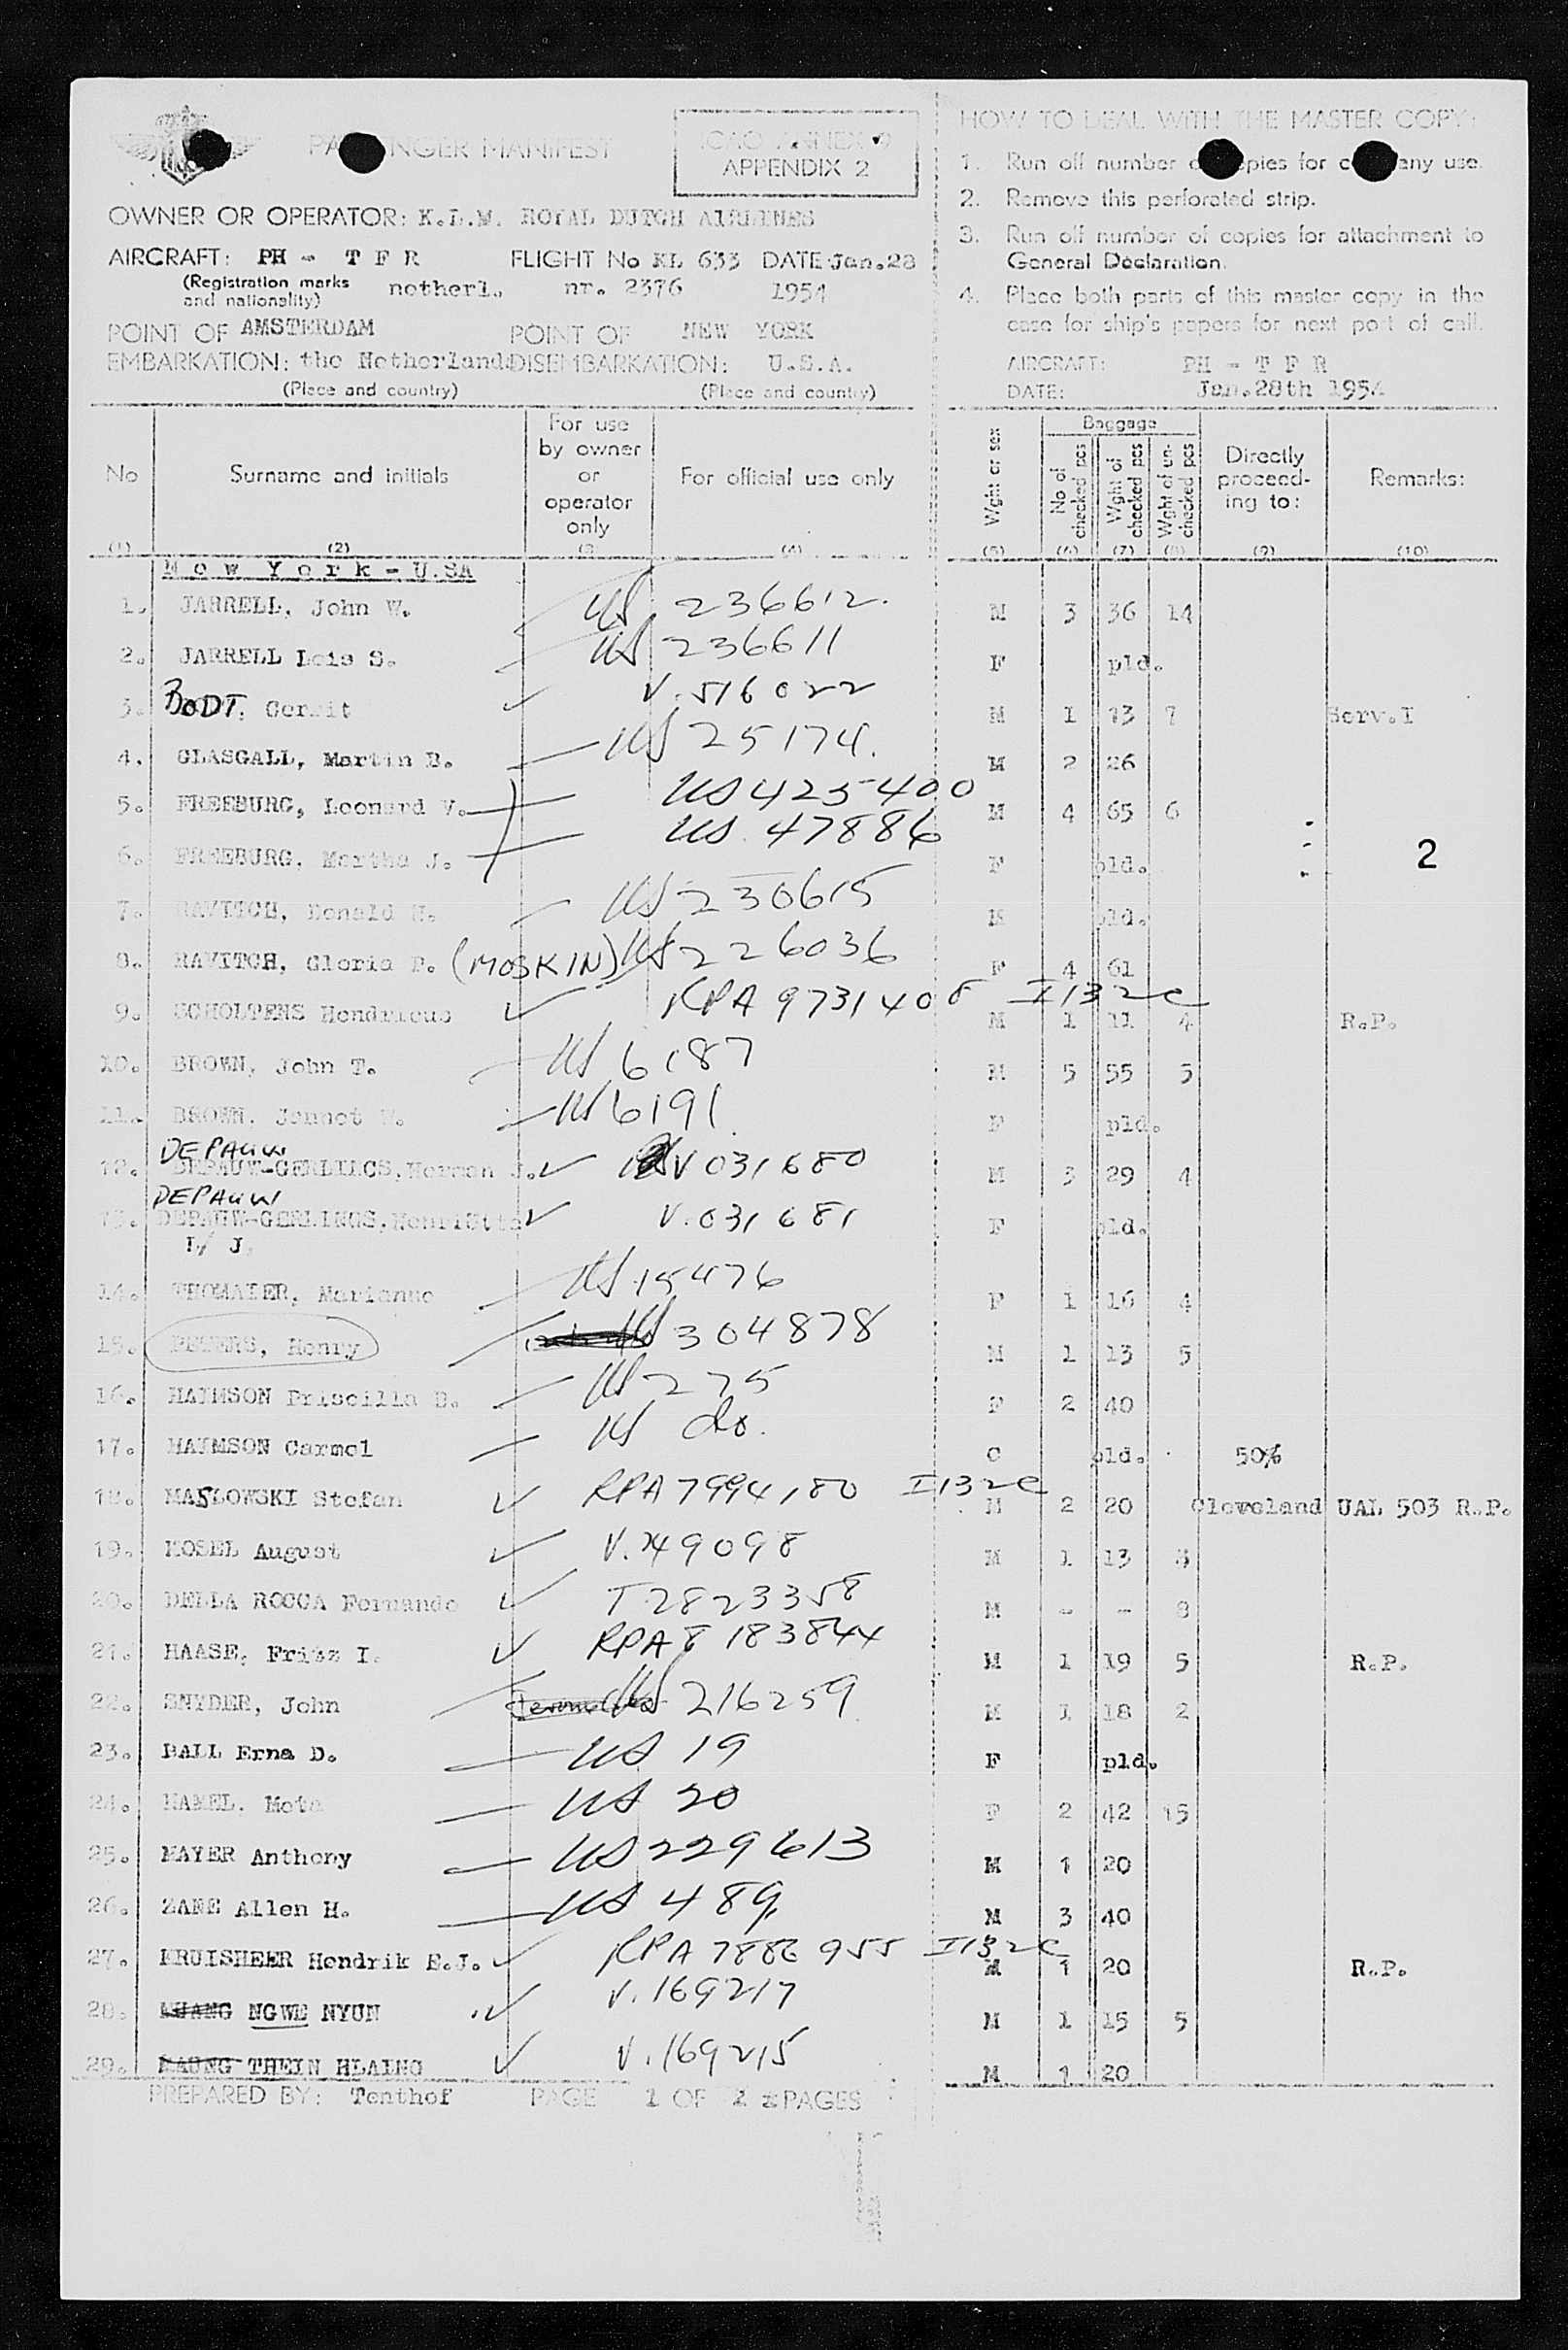 PASSENGER MANIFEST
ICAO ANNEX 9
APPENDIX 2
OWNER OR OPERATOR: K.L.M. ROYAL DUTCH AIRLINES
AIRCRAFT: PH - T F R FLIGHT No KL 633 DATE Jan.28
(Registration marks and nationality) netherl. nr. 2376 1954
POINT OF EMBARKATION: AMSTERDAM the Netherlands POINT OF DISEMBARKATION: NEW YORK U.S.A.
(Place and country) (Place and country)
HOW TO DEAL WITH THE MASTER COPY:
1. Run off number of copies for company use.
2. Remove this perforated strip.
3. Run off number of copies for attachment to
General Declaration.
4. Place both parts of this master copy in the
case for ship's papers for next port of call.
AIRCRAFT: PH - T F R
DATE: Jan.28th 1954
No Surname and initials For use by owner or operator only For official use only Wght or sex Baggage No of checked pcs Wght of checked pcs Wght of un-checked pcs Directly proceed-ing to: Remarks:
(1) (2) (3) (4) (5) (6) (7) (8) (9) (10)
New York - U.SA
1. JARRELL, John W. US 236612. M 3 36 14
2. JARRELL Lois S. US 236611 F pld.
3. BODT, Gerrit V. 516022 M 1 13 7 Serv.I
4. GLASGALL, Martin B. US 25174. M 2 26
5. FREEBURG, Leonard V. US 425400 M 4 65 6
6. FREEBURG, Martha J. US 47886 F pld. 2
7. RAVITCH, Donald N. US 230615 M pld.
8. RAVITCH, Gloria P. (MOSKIN) US 226036 F 4 61
9. SCHOLTENS Hendricus RPA 9731408 I132c M 1 11 4 R.P.
10. BROWN, John T. US 6187 M 5 55 5
11. BROWN, Jannet W. US 6191 F pld.
DEPAUW
12. DEPAUW-GERLINGS, Herman J. V 031680 M 3 29 4
DEPAUW
13. DEPAUW-GERLINGS, Henriëtte V. 031681 F pld.
L/ J.
14. THOMAIER, Marianne US 15476 F 1 16 4
15. PETERS, Henry US 304878 M 1 13 5
16. HAIMSON Priscilla B. US 275 F 2 40
17. HAIMSON Carmel US do. C pld. 50%
18. MASLOWSKI Stefan RPA 7994180 I132c M 2 20 Cleveland UAL 503 R.P.
19. MOSEL August V. 249098 M 1 13 3
20. DELLA ROCCA Fernando T 2823358 M - - 8
21. HAASE, Fritz I. RPA 8183844 M 1 19 5 R.P.
22. SNYDER, John US 216259 M 1 18 2
23. BALL Erna D. US 19 F pld.
24. HAMEL, Meta US 20 F 2 42 15
25. MAYER Anthony US 229613 M 1 20
26. ZANE Allen H. US 489 M 3 40
27. KRUISHEER Hendrik E.J. RPA 7886955 I132c M 1 20 R.P.
28. MHANG NGWE NYUN V. 169217 M 1 15 5
29. MAUNG THEIN HLAING V. 169215 M 1 20
PREPARED BY: Tenthof PAGE 1 OF 2 PAGES